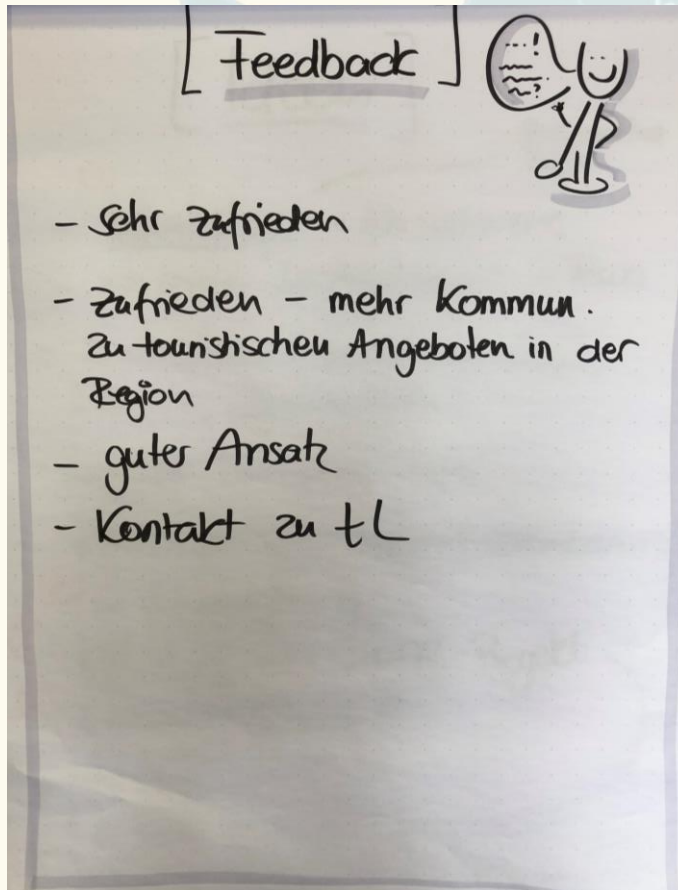 [Feedback]
- sehr zufrieden
- zufrieden - mehr Kommun.
zu touristischen Angeboten in der
Region
- guter Ansatz
- Kontakt zu tL